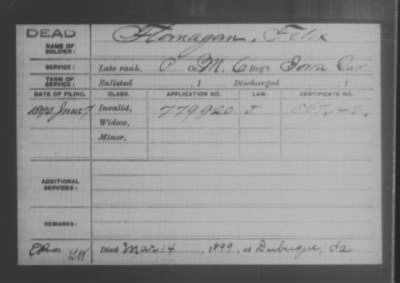 DEAD
NAME OF SOLDIER: Flanagan, Felix
SERVICE: Late rank, P Co. M, 6 Reg't Iowa Cav
TERM OF SERVICE: Enlisted , 1 Discharged , 1
DATE OF FILING. CLASS. APPLICATION NO. LAW. CERTIFICATE NO.
1890 June 7 Invalid, 779920 J
Widow,
Minor,
ADDITIONAL SERVICES:
REMARKS:
Died Mar 14, 1899, at Dubuque, Ia